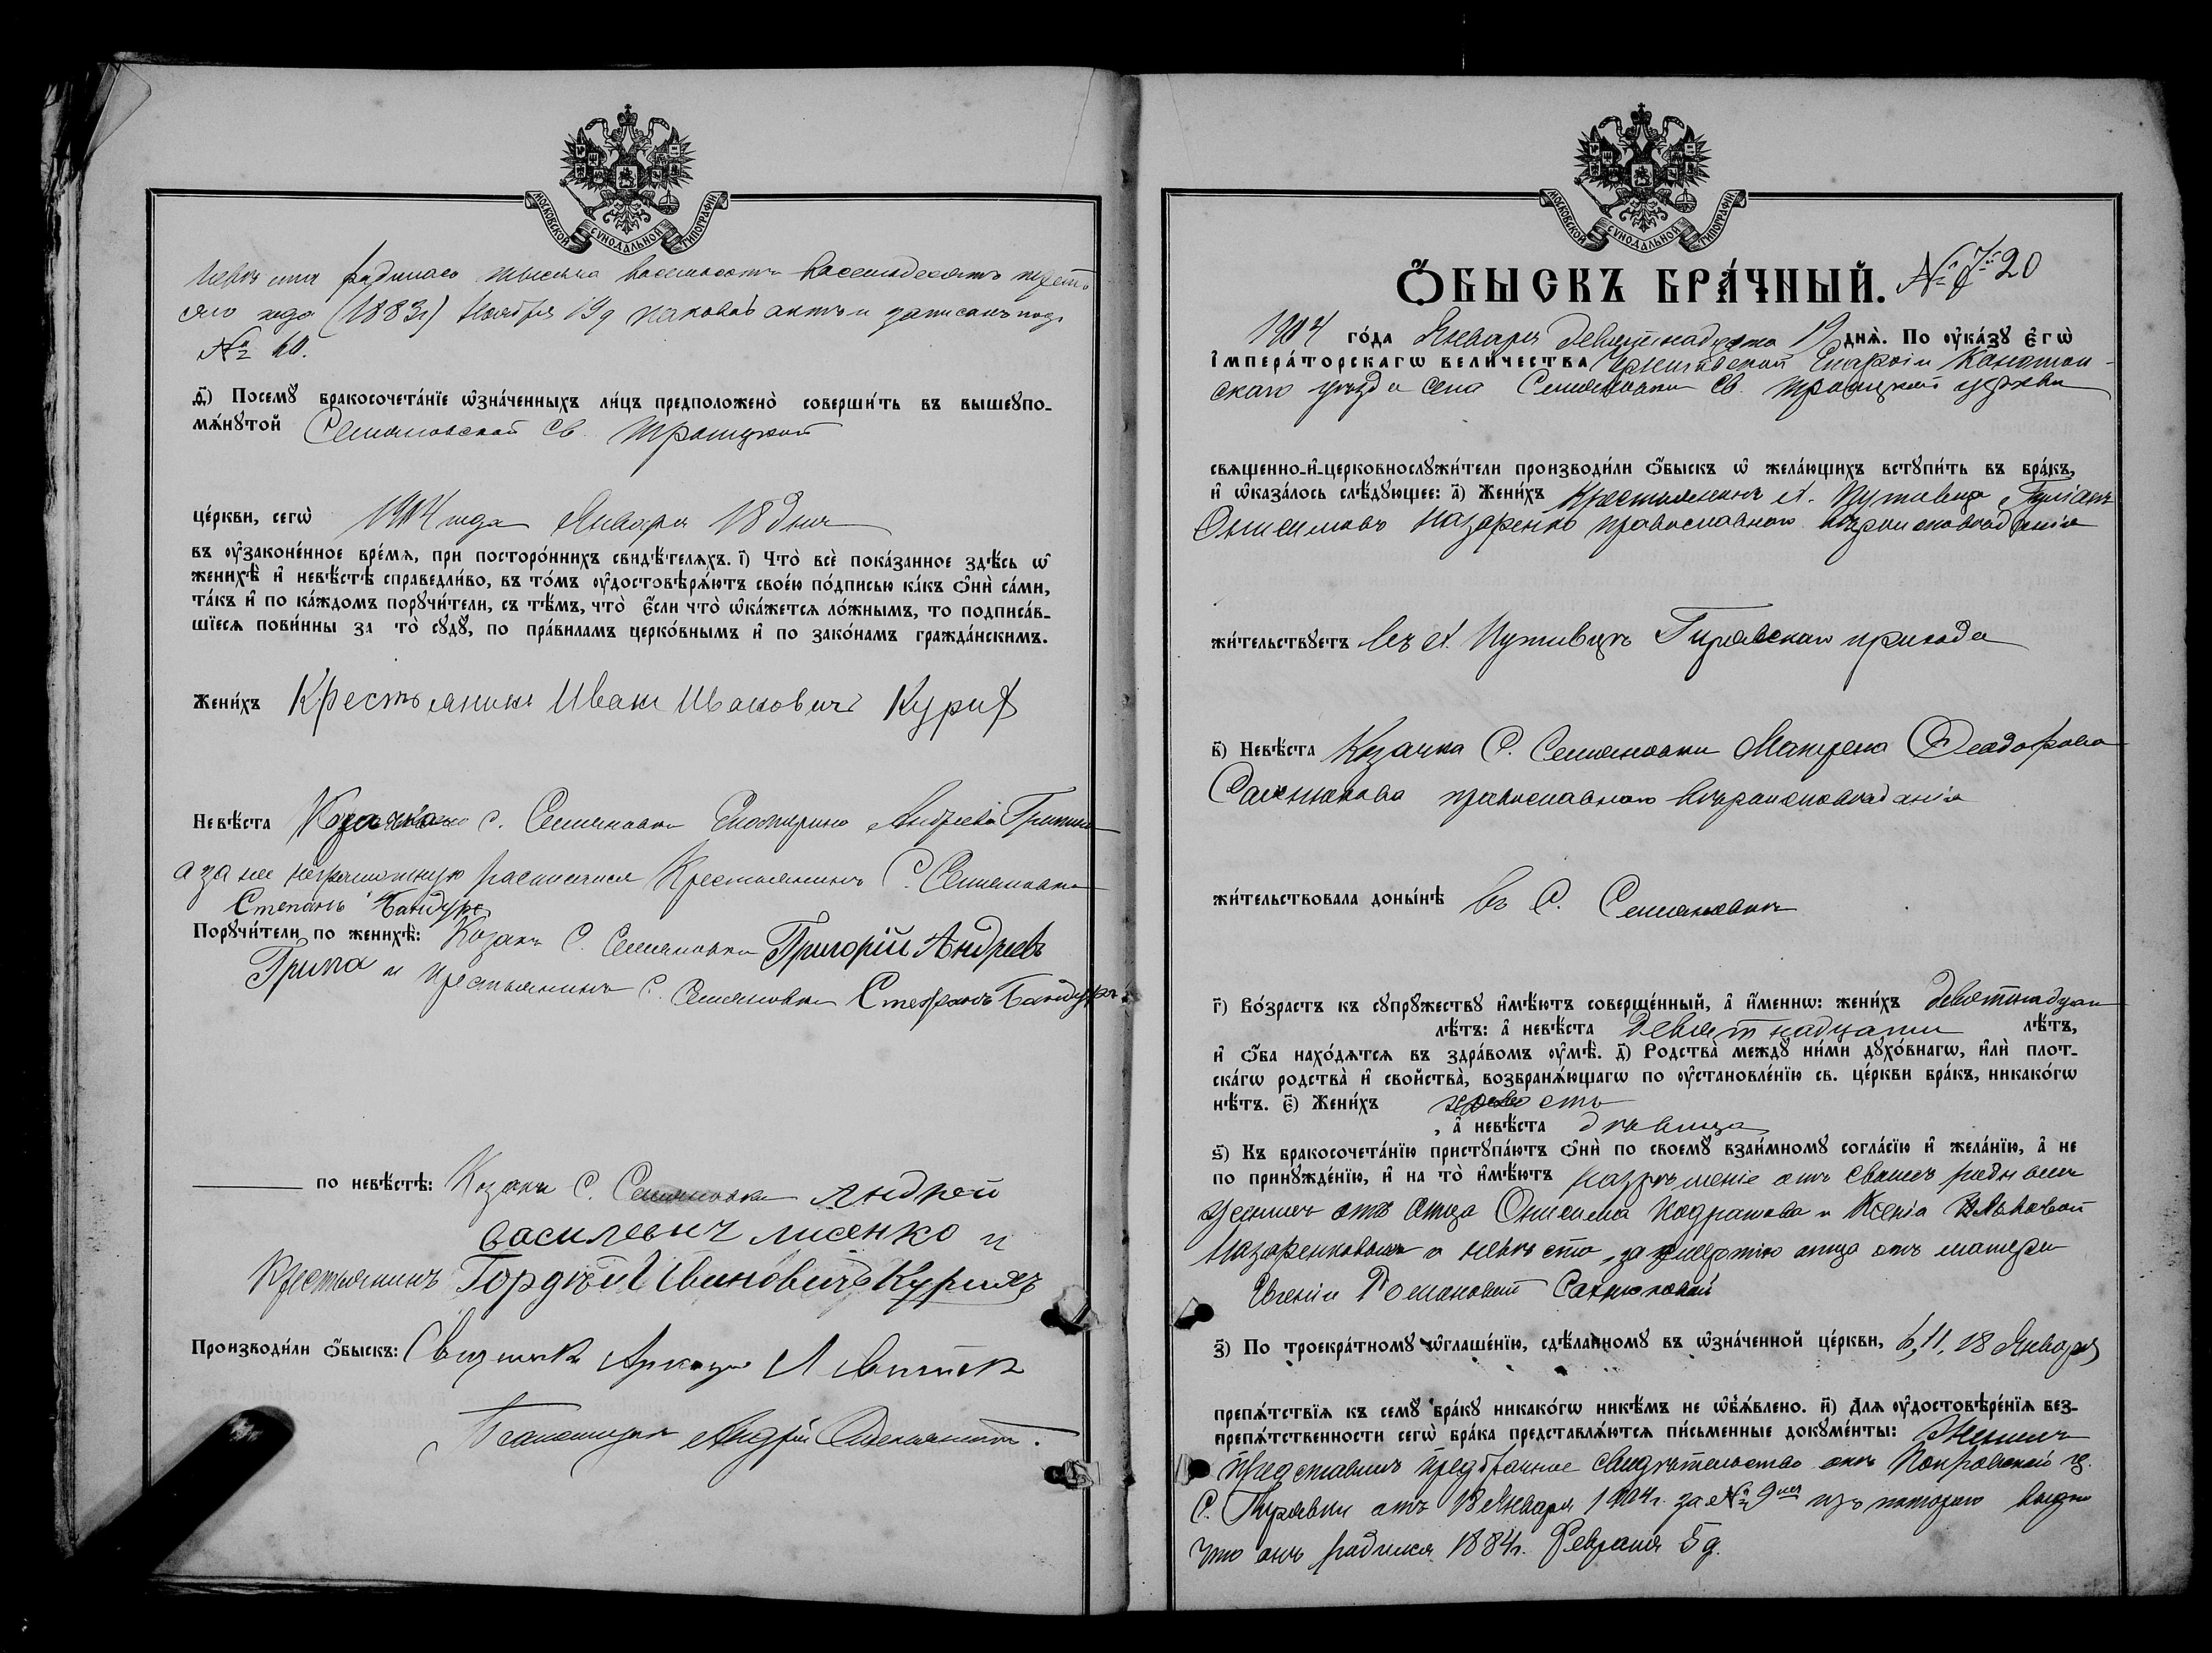 МОСКОВСКОЙ СѴНОДАЛЬНОЙ ТИПОГРАФІИ
родилась тысяча восемьсотъ восемьдесятъ треть
яго года (1883г) Ноября 19д каковой актъ и записанъ подъ
№ 60.
ѳ҃) Посемꙋ̀ бракосочета́нїе ѡ҆зна́ченныхъ ли́цъ предположено̀ соверши́ть въ вышеꙋпо-
мѧ́нꙋтой Семяновской Св. Троицкой
це́ркви, сегѡ̀ 1904 года Января 18 дня
въ ᲂу҆законе́нное вре́мѧ, при посторо́ннихъ свидѣ́телѧхъ. і҃) Что̀ всѐ пока́занное здѣ́сь ѡ҆
женихѣ̀ и҆ невѣ́стѣ справедли́во, въ то́мъ ᲂу҆достовѣрѧ́ютъ свое́ю по́дписью ка́къ ѻ҆нѝ са́ми,
та́къ и҆ по ка́ждомъ порꙋчи́тели, съ тѣ́мъ, что̀ є҆́сли что̀ ѡ҆ка́жетсѧ ло́жнымъ, то подписа́в-
шїесѧ пови́нны за то̀ сꙋдꙋ̀, по пра́виламъ церко́внымъ и҆ по зако́намъ гражда́нскимъ.
Жени́хъ Крестьянинъ Иванъ Ивановичъ Куриъ
Невѣ́ста Козачка с. Семяновки Екатерина Андреева Грипина
а за нее неграмотную расписался Крестьянинъ С. Семяновки
Степанъ Бандура
Порꙋчи́тели по женихѣ̀: Козакъ С. Семяновки Григорій Андреевъ
Грипа и крестьянинъ С. Семяновки Стефанъ Бандура
по невѣ́стѣ: Козакъ С. Семяновки Андрей
Василевич Лисенко и
Крестьянинъ Гордѣй Ивановичъ
Производи́ли ѻ҆́быскъ: Священникъ
Псаломщикъ Андрей
МОСКОВСКОЙ СѴНОДАЛЬНОЙ ТИПОГРАФІИ
Ѻ҆́БЫСКЪ БРА́ЧНЫЙ. № 20
1904 го́да Января девятнадцатаго 19 днѧ̀. По ᲂу҆ка́зꙋ є҆гѡ̀
і҆мпера́торскагѡ вели́чества Черниговской Епархіи Конотоп-
скаго уезда села Семяновки Св. Троицкой церкви
свѧщенно-и҆-церковнослꙋжи́тели производи́ли ѻ҆́быскъ ѡ҆ жела́ющихъ встꙋпи́ть въ бра́къ,
и҆ ѡ҆каза́лось слѣ́дꙋющее: а҃) Жени́хъ Крестьянинъ х. Путивца
Онисимовъ Назаренко православнаго вѣроисповѣданія
жи́тельствꙋетъ въ х. Путивцѣ Гирявскаго прихода
в҃) Невѣ́ста Козачка С. Семяновки Макрена Феодорова
Сахнюкова православнаго вѣроисповѣданія
жи́тельствовала доны́нѣ въ С. Семяновкѣ
г҃) Во́зрастъ къ сꙋпрꙋ́жествꙋ и҆мѣ́ютъ соверше́нный, а҆ и҆́меннѡ: жени́хъ девятнадцати
лѣ́тъ: а҆ невѣ́ста девятнадцати лѣ́тъ,
и҆ ѻ҆́ба нахо́дѧтсѧ въ здра́вомъ ᲂу҆мѣ̀. д҃) Родства̀ междꙋ̀ ни́ми дꙋхо́внагѡ, и҆лѝ плот-
ска́гѡ родства̀ и҆ свойства̀, возбранѧ́ющагѡ по ᲂу҆становле́нїю св. це́ркви бра́къ, никако́гѡ
нѣ́тъ. є҃) Жени́хъ холостъ
, а҆ невѣ́ста дѣвица
ѕ҃) Къ бракосочета́нїю пристꙋпа́ютъ ѻ҆нѝ по своемꙋ̀ взаи́мномꙋ согла́сїю и҆ жела́нїю, а҆ не
по принꙋжде́нїю, и҆ на то̀ и҆мѣ́ютъ разрѣшеніе отъ своихъ родныхъ
женихъ отъ отца Онисима Кодратова и Ксенія Назаренковыхъ
а невѣста, за смертію отца отъ матери
Евгеніи Романовой Сахнюковой
з҃) По троекра́тномꙋ ѡ҆глаше́нїю, сдѣ́ланномꙋ въ ѡ҆зна́ченной це́ркви, 6, 11, 18 Января
препѧ́тствїѧ къ семꙋ̀ бра́кꙋ никако́гѡ никѣ́мъ не ѡ҆б̾ѧ́влено. и҃) Для ᲂу҆достовѣре́нїѧ без-
препѧ́тственности сегѡ̀ бра́ка представлѧ́ютсѧ пи́сьменные докꙋме́нты: Женихъ
представилъ предбрачное свидѣтельство отъ Покровской ц.
С. Гирявки отъ 18 Января 1904г. за № 9 изъ котораго видно
что онъ родился 1884г. Февраля 5д.